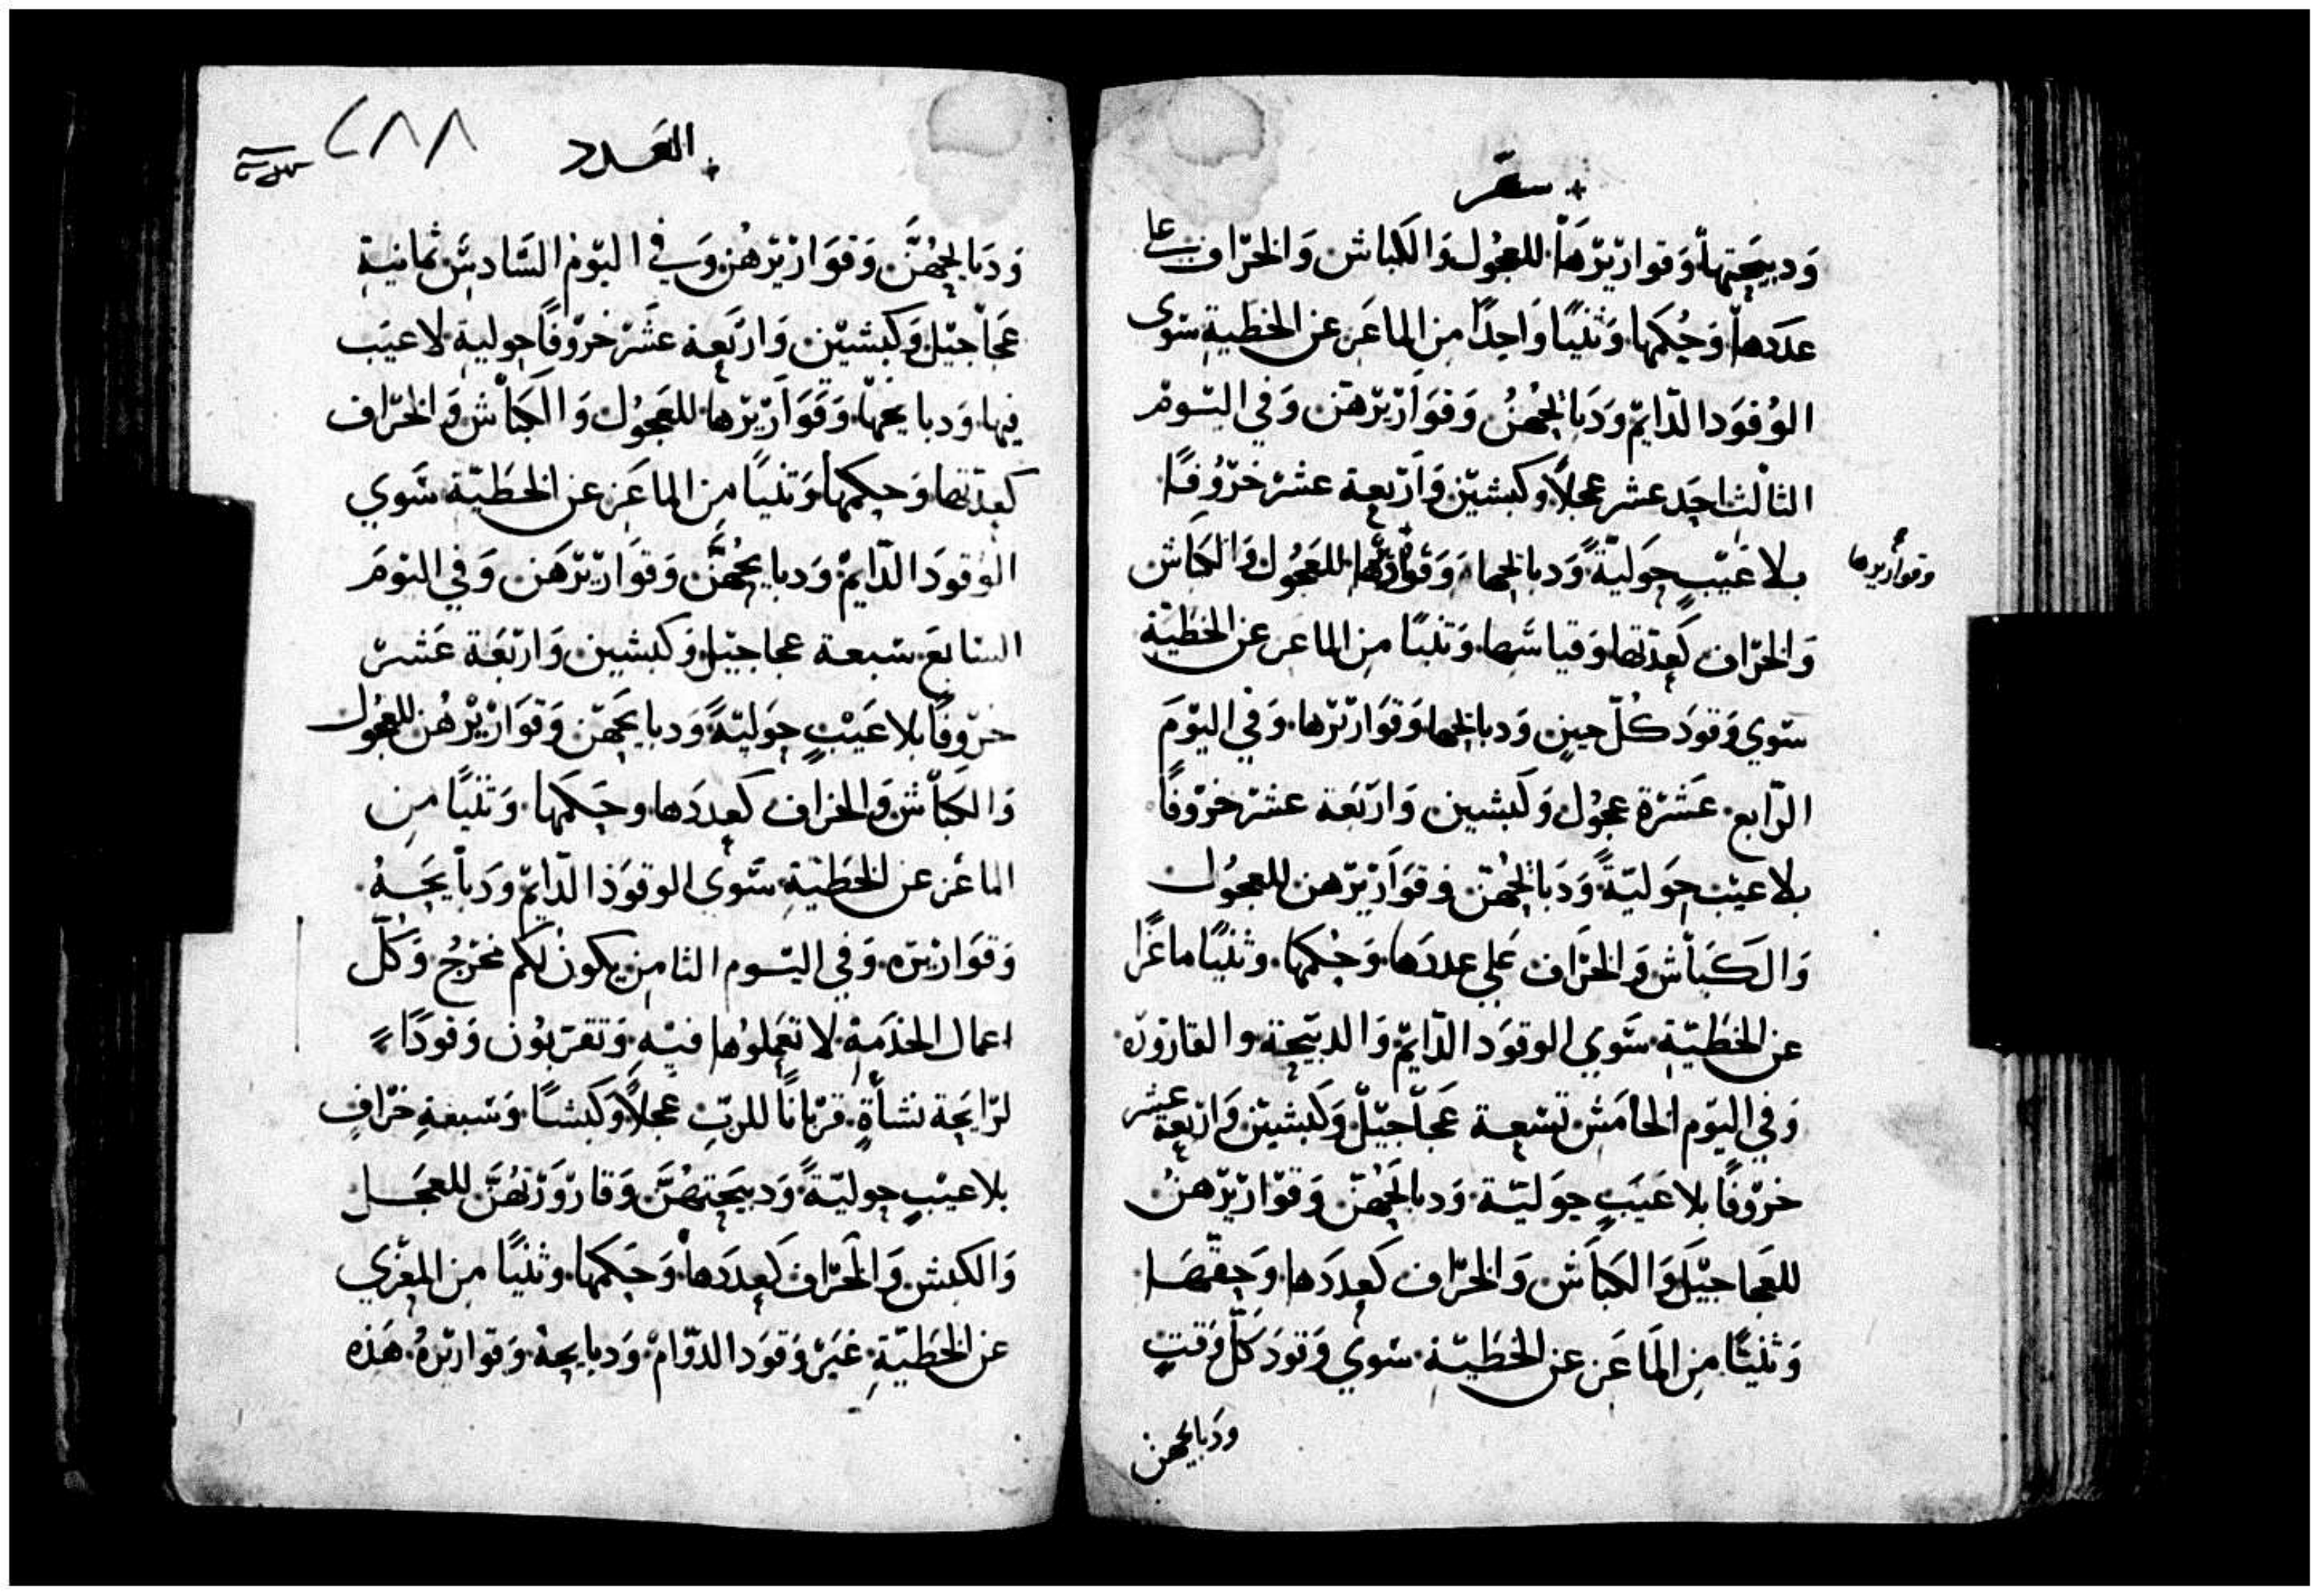 سفر
وَدبيحَتهاْ وَقواريْرَهَاْ للعجُول وَالكباش وَالخرّاف علي
عدَدهاْ وَحُكمَها وَثنيًا وَاحدًا مِن الماعَز عن الخطيةِ سَوى
الوُقوَد الدّايمْ وَدَبَايحْهُنُ وَقوَاريْرهنّ وَفي اليَومْ
الثالث احِدَ عشر عجلاً وكبشيْن وَارْبعة عشرْ خرُوفًا
بلا عَيْبٍ حوَليّةً وَدبايحها وَقواريْرها للعجُول وَالكباش
وقواريرها
وَالخرّاف كعِدّتها وَقياسَها وَتنيًا مِن الماعز عن الخطيّة
سَوي وَقودَ كُلّ حينٍ وَدبايحها وَقوَاريْرها وَفي اليَوْمَ
الرّابع عَشرْة عجوُل وَكبشين وَارْبَعة عشرْ خرْوفًا
بلا عيْب حوَليّةً وَدَبَايحْهُنّ وقوَاَريْرَهن للعجوُل
وَالكَبَاْش وَالخرَاف عَلي عددَها وَحُكمَها وثنيًا ماعزًا
عن الخطَيّة سَوي الوقوَد الدّايمْ وَالدبيْحَة والقارورَه
وَفي اليَوم الخاْمَسْ تسْعِة عَجاّجيْلّ وَكبشيَنْ وَارْبعة عشر
خروْفًا بلا عَيَبٍ حوَليّة وَدبايَحْهُنّ وَقوَاريْرّهنُ
للعجاجيْلَ وَالكباَش وَالخرّاف كعددَها وَحقّهَا
وَثنيًا مِن الماَعَز عن الخطيّة سَوي وَقودَ كلّ وَقتٍ
ودَبايحهن
العَدد
٢٨٨
وَدَبايحْهُنَّ وَقوَاريْرَهُن وَفي اليَوْم السَّادسْ ثمانية
عَجاْجيْل وَكبشيْن وَارْبَعِة عشَرْ خرْوفًا حوليةً لا عيَب
فيها وَدبايحهاّ وَقوَاريْرّها للعَجوُل وَالكبَاْش وَالخرّاف
كعدّتها وَحكمَهاْ وَتنيًا مِن الماعَز عن الخطَيّة سَوي
الوقودَ الدّايمْ وَدبايحْهُنَّ وَقوَاريْرَهَن وَفي اليوْمَ
السّابعَ سَبعة عجاجيْل وَكبشين وَارْبَعَة عَشرْ
خرْوفًا بلا عَيْبٍ حوَليّةً وَدبايحَهنّ وَقوَاريْرهُن للعجُول
وَالكبَاْش وَالخراف كعددَها وحَكمَها وَتنيًا مِن
الماعَز عن الخطَيّةِ سَوى الوقوَد الدايمْ وَدَباْيحَهُ
وَقوَاريْرَه وَفي اليَوم الثامِن يكونْ لكم مخرْجُ وَكُلّ
اعمال الخدْمةْ لا تعْمِلوُها فيْهِ وَتقرّبوُن وَقودًا
لرّايحَة نشأةٍ قرْبانًا للربِّ عجلاً وَكبشًا وَسَبعةِ خرْافٍ
بلا عيْبٍ حوليّةً وَدبيحَتهُنَّ وَقارْورَتهُنَّ للعجَل
وَالكبش وَالخرّاف كعددَهاْ وَحَكمَها وثنيًا مِن المعْزي
عن الخطَيّةِ غيَرْ وَقوَد الدوّامْ وَدبايحهْ وَقوَاريْرهُ هَذه